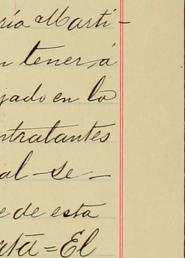 ría Marti-
n tener, á
gado en lo
ntratantes
al-se-
e de esta
ata=El